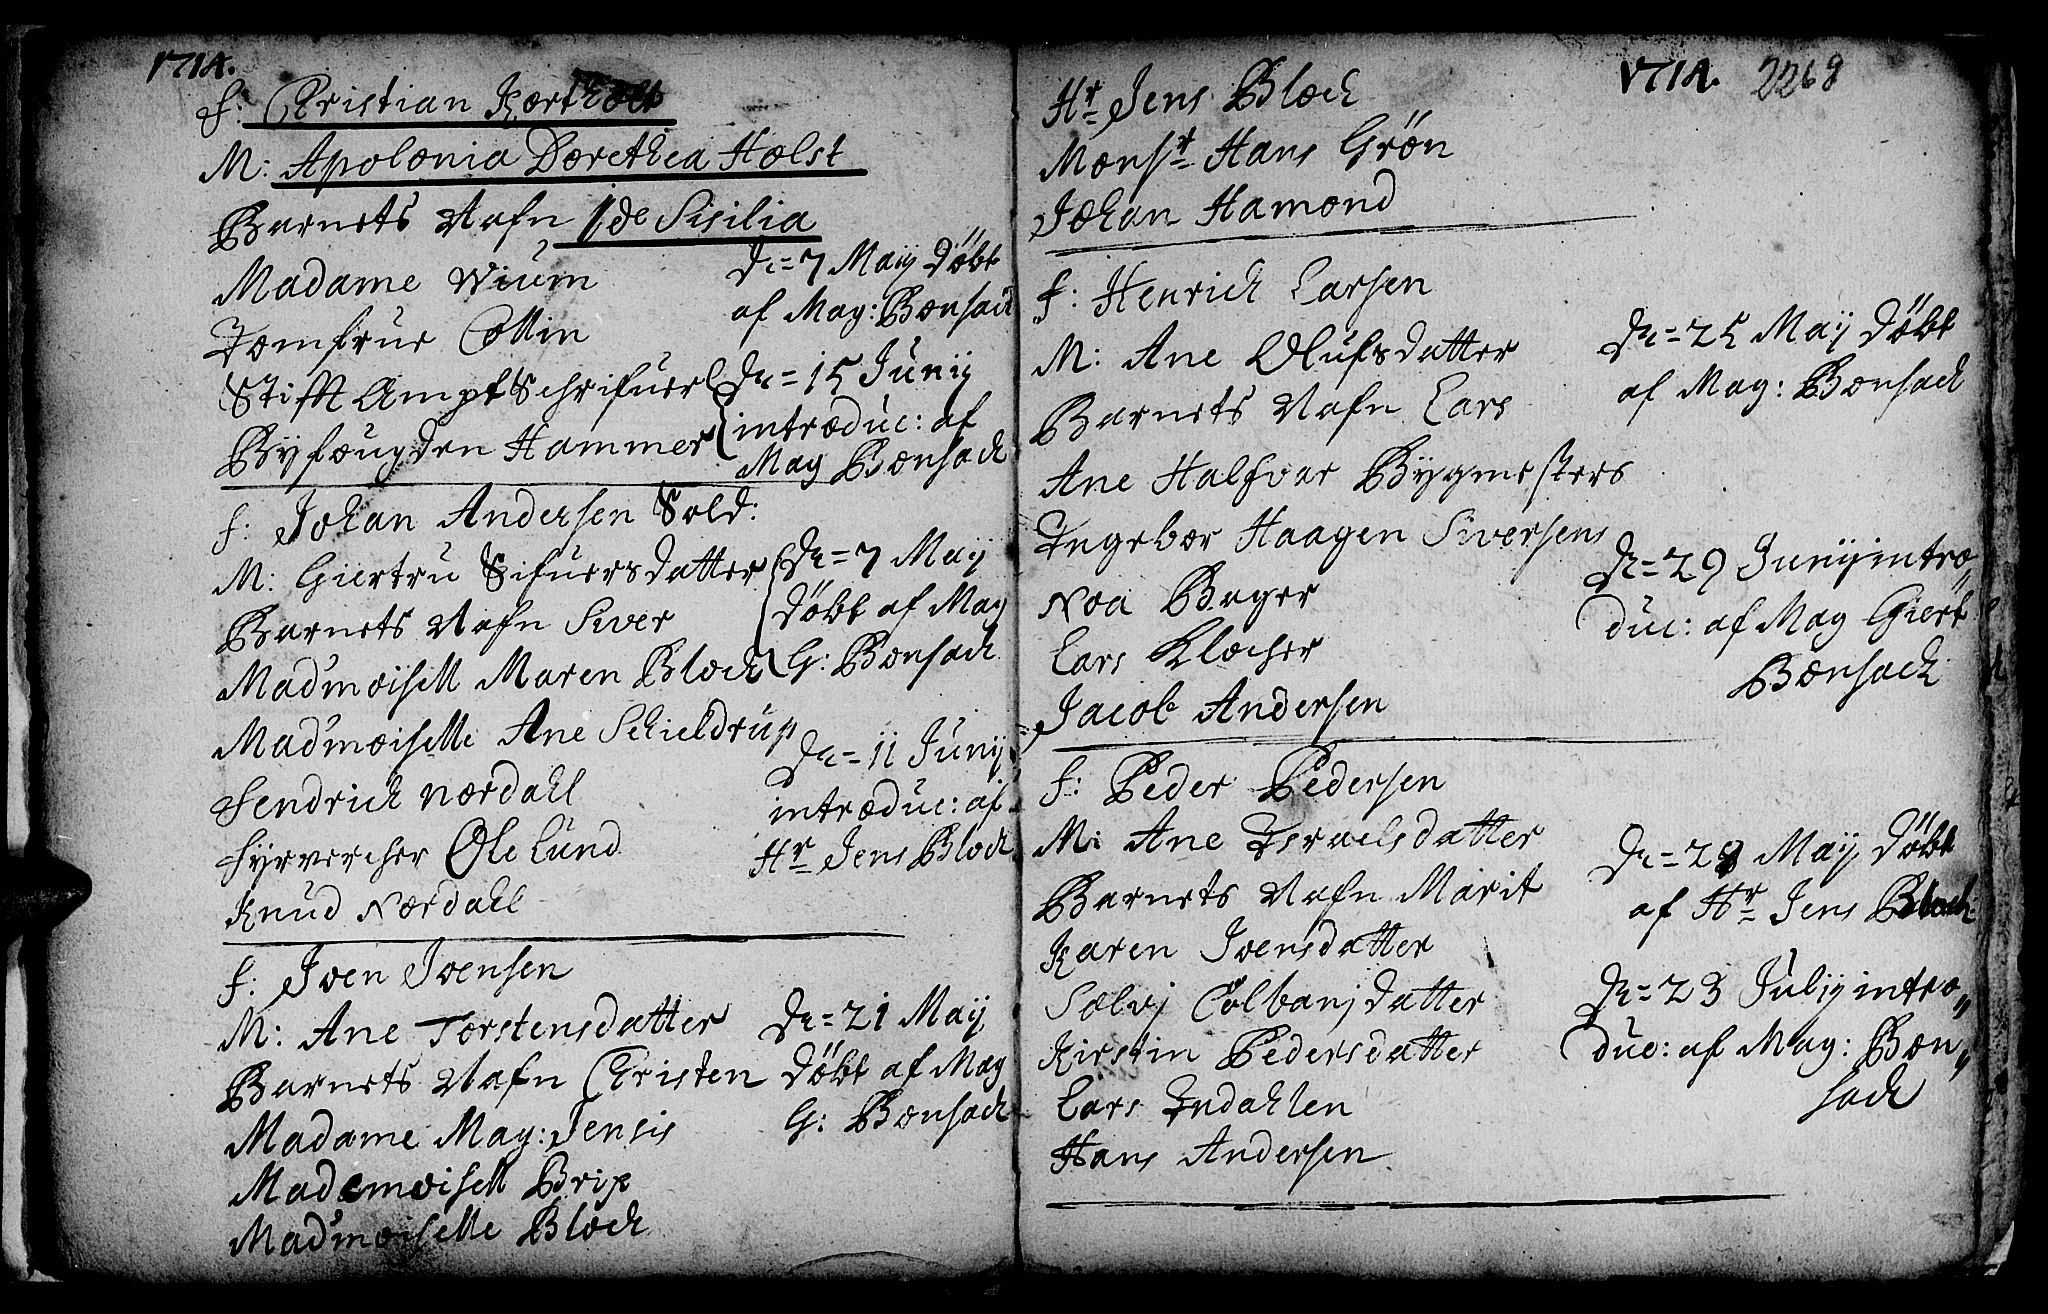 1714.
F: Christian Kortholt
M: Apolonia Dorethea Holst
Barnets Nafn Ide Sisilia
Madame Wium
Jomfrue Collin
Stifft Ampt Schrifuer
Byfougden Hammer
Dn=7 Maij Döbt
af Mag: Bonsach
Dn=15 Junij
introduc: af
Mag Bonsach
F: Johan Andersen Sold:
M: Giertru Sifuersdatter
Barnets Nafn Siver
Madmoisell Maren Bloch
Madmoiselle Ane Schieldrup
Fendrich Nordahl
Fyrvercher Ole Lund
Knud Nordahl
Dn=7 Maij
Döbt af Mag
G: Bonsach
Dn=11 Junij
introduc: af
Hr Jens Bloch
F: Iven Ivensen
M: Ane Torstensdatter
Barnets Nafn Christen
Madame Mag: Jensis
Mademoisell Brix
Madmoiselle Bloch
Dn=21 Maij
Döbt af Mag
G: Bonsach
1714. 2268
Hr Jens Bloch
Monsr Hans Grön
Johan Hamond
F: Henrich Larsen
M: Ane Olufsdatter
Barnets Nafn Lars
Ane Halfvar Bygmesters
Ingebor Haagen Siversens
Noa Bager
Lars Klocher
Jacob Andersen
Dn=25 Maij Döbt
af Mag: Bonsach
Dn=29 Junij intro„
duc: af Mag Giert
Bonsach
F: Peder Pedersen
M: Ane Israelsdatter
Barnets Nafn Marit
Karen Ivensdatter
Solvj Colbanjdatter
Kirstin Pedersdatter
Lars Indahlen
Hans Andersen
Dn=28 Maij Döbt
af Hr Jens Bloch
Dn=23 Julij intro„
duc: af Mag: Bon„
sach